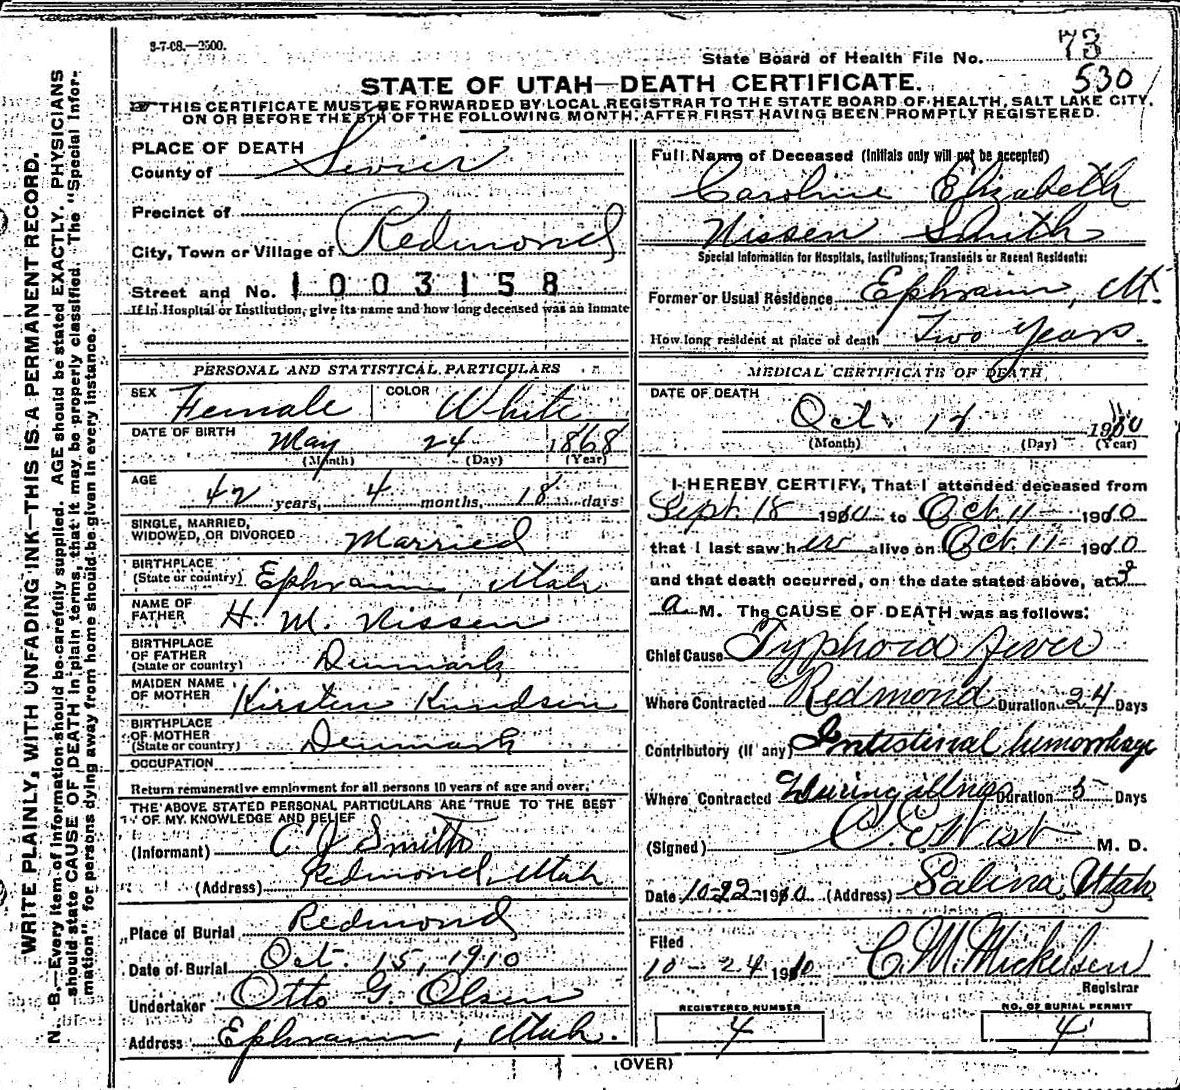 3-7-08.—2500.
State Board of Health File No. 73
530
STATE OF UTAH—DEATH CERTIFICATE.
THIS CERTIFICATE MUST BE FORWARDED BY LOCAL REGISTRAR TO THE STATE BOARD OF HEALTH, SALT LAKE CITY,
ON OR BEFORE THE 5TH OF THE FOLLOWING MONTH, AFTER FIRST HAVING BEEN PROMPTLY REGISTERED.
WRITE PLAINLY, WITH UNFADING INK—THIS IS A PERMANENT RECORD.
N. B.—Every item of information should be carefully supplied. AGE should be stated EXACTLY. PHYSICIANS
should state CAUSE OF DEATH in plain terms, that it may be properly classified. The "Special Infor-
mation" for persons dying away from home should be given in every instance.
PLACE OF DEATH
County of Sevier
Precinct of
City, Town or Village of Redmond
Street and No. 1003158
If in Hospital or Institution, give its name and how long deceased was an inmate
PERSONAL AND STATISTICAL PARTICULARS
SEX Female COLOR White
DATE OF BIRTH May 24 1868
(Month) (Day) (Year)
AGE 42 years, 4 months, 18 days
SINGLE, MARRIED,
WIDOWED, OR DIVORCED Married
BIRTHPLACE
(State or country) Ephraim, Utah
NAME OF
FATHER H. M. Nissen
BIRTHPLACE
OF FATHER
(State or country) Denmark
MAIDEN NAME
OF MOTHER Kirsten Knudsen
BIRTHPLACE
OF MOTHER
(State or country) Denmark
OCCUPATION
Return remunerative employment for all persons 10 years of age and over.
THE ABOVE STATED PERSONAL PARTICULARS ARE TRUE TO THE BEST
OF MY KNOWLEDGE AND BELIEF
(Informant) C J Smith
(Address) Redmond, Utah
Place of Burial Redmond
Date of Burial Oct. 15, 1910
Undertaker Otto G. Olsen
Address Ephraim, Utah.
Full Name of Deceased (Initials only will not be accepted)
Caroline Elizabeth
Nissen Smith
Special Information for Hospitals, Institutions, Transients or Recent Residents:
Former or Usual Residence Ephraim, Ut.
How long resident at place of death Two Years.
MEDICAL CERTIFICATE OF DEATH
DATE OF DEATH
Oct. 12 1910
(Month) (Day) (Year)
I HEREBY CERTIFY, That I attended deceased from
Sept. 18 1910 to Oct. 11 1910
that I last saw her alive on Oct. 11 1910
and that death occurred, on the date stated above, at 2
a. M. The CAUSE OF DEATH was as follows:
Chief Cause Typhoid fever
Where Contracted Redmond Duration 24 Days
Contributory (if any) Intestinal hemorrhage
Where Contracted During illness Duration 5 Days
(Signed) C. E. West M. D.
Date 10-22-1910 (Address) Salina, Utah
Filed
10-24 1910 C. M. Mickelsen
Registrar
REGISTERED NUMBER NO. OF BURIAL PERMIT
4 4
(OVER)